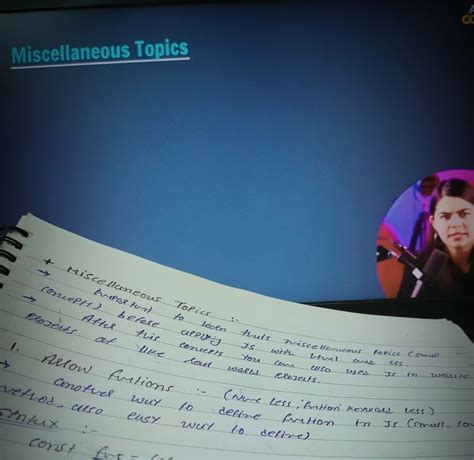 Miscellaneous Topics
A
CO
* Miscellaneous Topics :-
→ Important to learn thats miscellaneous topics (small
concepts) before applying JS with html and css.
→ After this concepts you can also used JS in website
projects at like real world projects.
1. Arrow funtions :- (Name less, funtion keyword less)
→ another way to define funtion in JS (small, con
method, also easy way to define)
Syntax :-
const func =